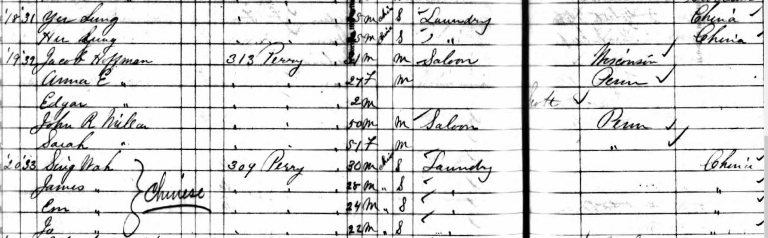 '18 '31 Yer Lung 25 M Chi S Laundry China ✓
Her Lung 25 M Chi S " " China ✓
'19 '32 Jacob Hoffman 313 Perry 31 M M Saloon Wisconsin ✓
Anna E " " " 27 F M Penn ✓
Edgar " " " 2 M ✓
John R Miller " " 50 M M Saloon Penn ✓
Sarah " " " 51 F M " ✓
'20 '33 Sing Wah 309 Perry 30 M Chi S Laundry China ✓
James " " " 28 M " S " ✓
Em " Chinese " " 24 M " S " ✓
Jo " " " 22 M " S " ✓